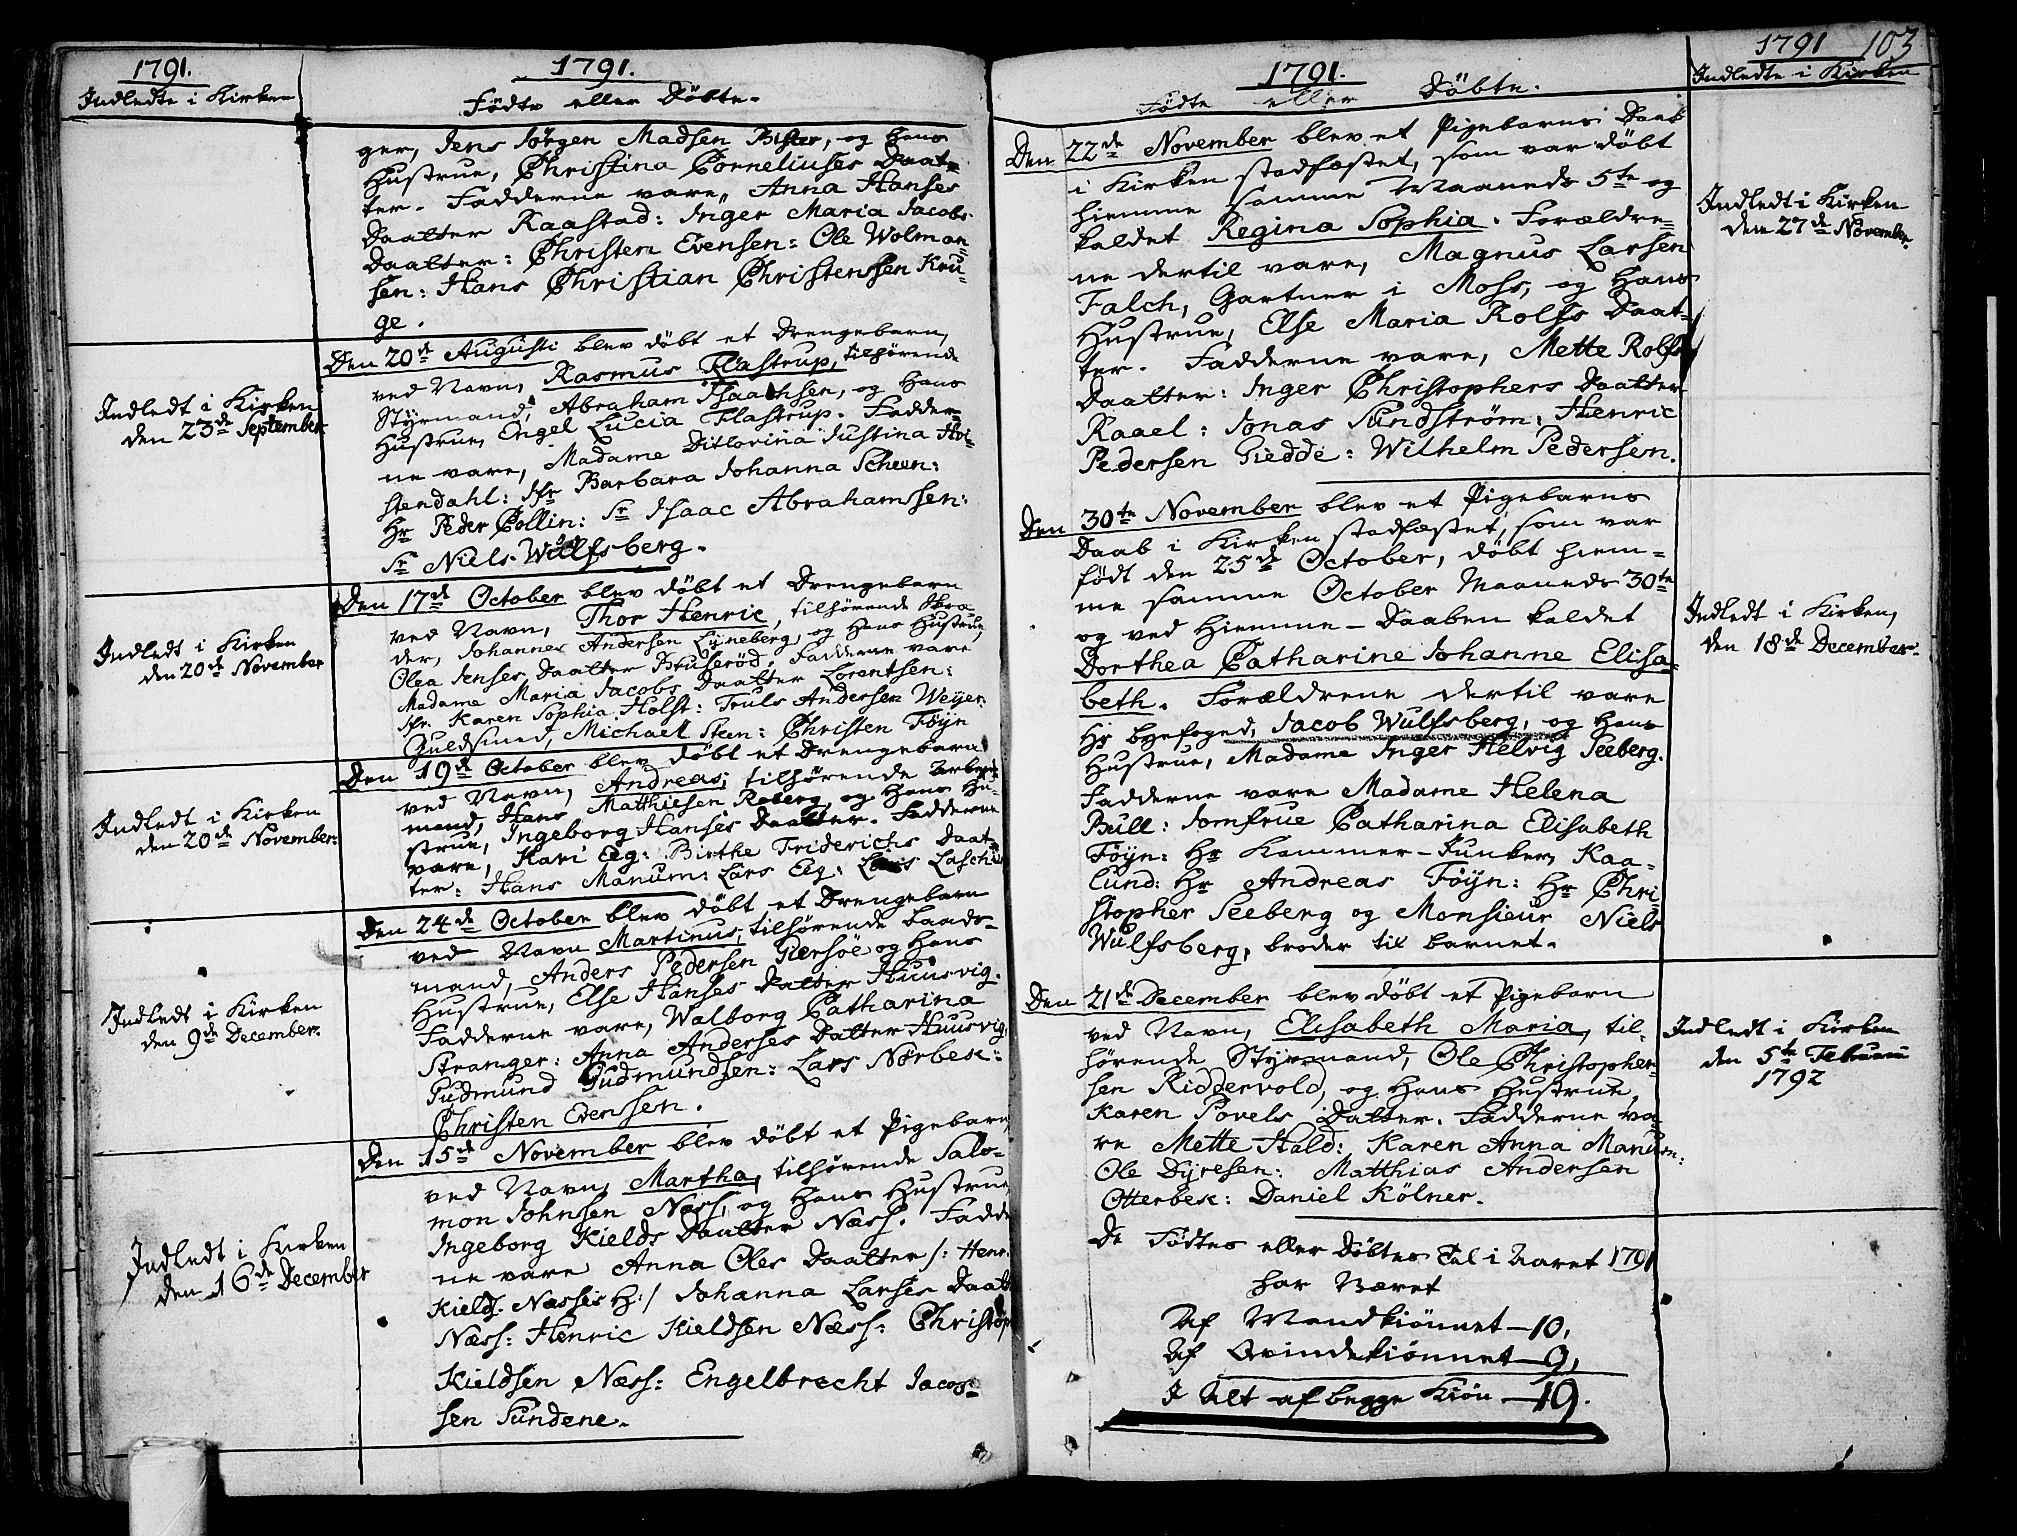 1791.
Indledte i Kirken
1791.
Fødte eller Døbte.
ger, Jens Jörgen Madsen Bister, og hans
Hustrue, Christina Corneliuses Daat=
ter. Fadderne vare, Anna Hanses
Daatter Raastad: Inger Maria Jacobs
Daatter: Christen Evensen: Ole Wolman=
sen: Hans Christian Christenssen Kru=
ge.
Den 20de Augusti blev døbt et Drengebarn,
ved Navn, Rasmus Flastrup, tilhørende
Styrmand, Abraham Isaachsen, og hans
Hustrue, Engel Lucia Flastrup. Fadder=
ne vare, Madame Ditlovina Justina Hvi=
stendahl: Jfr Barbara Johanna Scheen:
Hr Peder Collin: Sr Isaac Abrahamssen:
Sr Niels Wulfsberg.
Indledt i Kirken
den 23de September
Den 17de October blev døbt et Drengebarn
ved Navn, Thor Henric, tilhørende Skræ=
der, Johannes Andersen Lyneberg, og hans Hustrue
Olea Jenses Daatter Bruserød. Fadderne vare
Madame Maria Jacobs Daatter Lorentsen:
Jfr. Karen Sophia Holst: Truls Andersen Weyer
Guldsmed, Michael Steen: Christen Föyn
Indledt i Kirken
den 20de November
Den 19de October blev døbt et Drengebarn
ved Navn, Andreas, tilhørende Arbeyds
mand, Hans Matthiesen Roberg, og Hans Hu=
strue, Ingeborg Hanses Daatter. Fadderne
vare, Kari Eeg: Birthe Friderichs Daat=
ter: Hans Manum: Lars Eeg: Lars Lasch
Indledt i Kirken
den 20de November:
Den 24de October blev døbt et Drengebarn
ved Navn Martinus, tilhørende Baads=
mand, Anders Pedersen Persöe og hans
Hustrue, Else Hanses Datter Huusvig.
Fadderne vare, Walborg Catharina
Stranger: Anna Anderses Datter Huusvig,
Gudmund Gudmundsen: Lars Norbek:
Christen Evenssen.
Indledt i Kirken
den 9de December.
Den 15de November blev døbt et Pigebarn,
ved Navn, Martha, tilhørende Salo=
mon Johnsen Næss, og hans Hustrue
Ingeborg Kields Daatter Næss. Fadde
ne vare Anna Oles Daatter /: Henr.
Kields. Næsses H:/ Johanna Larses Daatt
Næss: Henric Kieldsen Næss: Christop
Kieldsen Næss: Engelbrecht Jacos=
sen Sundene.
Indledt i Kirken
den 16de December
1791.
Fødte eller Döbte.
1791 103
Indledte i Kirken
Den 22de November blev et Pigebarns Daab
i Kirken stadfæstet, som var döbt
hiemme samme Maaneds 5te og
kaldet Regina Sophia. Forældre=
ne dertil vare, Magnus Larsen
Falch, Gartner i Moss, og hans
Hustrue, Else Maria Rolfs Daat=
ter. Fadderne vare, Mette Rolfs
Daatter: Inger Christophers Daatter
Raael: Jonas Sundström: Henric
Pedersen Giedde: Wilhelm Pedersen.
Indledt i Kirken
den 27de November.
Den 30te November blev et Pigebarns
Daab i Kirken stadfæstet, som var
født den 25de October, døbt hiem=
me samme October Maaneds 30te
og ved Hiemme-Daaben kaldet
Dorthea Catharine Johanne Elisa=
beth. Forældrene dertil vare
Hr Byefoged, Jacob Wulfsberg, og hans
Hustrue, Madame Inger Helvig Seeberg.
Fadderne vare Madame Helena
Bull: Jomfrue Catharina Elisabeth
Föyn: Hr Kammer-Junker, Kaa=
lund: Hr Andreas Föyn: Hr Chri=
stopher Seeberg og Monsieur Niels
Wulfsberg, broder til barnet.
Indledt i Kirken,
den 18de December.
Den 21de December blev døbt et Pigebarn
ved Navn, Elisabeth Maria, til=
hörende Styrmand, Ole Christopher=
sen Riddervold, og hans Hustrue,
Karen Povels Datter. Fadderne va=
re Mette Hald: Karen Anna Manum:
Ole Dyresen: Matthias Andersen
Otterbek: Daniel Kölner.
Indledt i Kirken
den 5te Februarii
1792
De Fødtes eller Døbtes Tal i Aaret 1791
har Været
Af Mandkiønnet — 10,
Af Qvindekiønnet — 9,
I Alt af begge Kiön — 19.